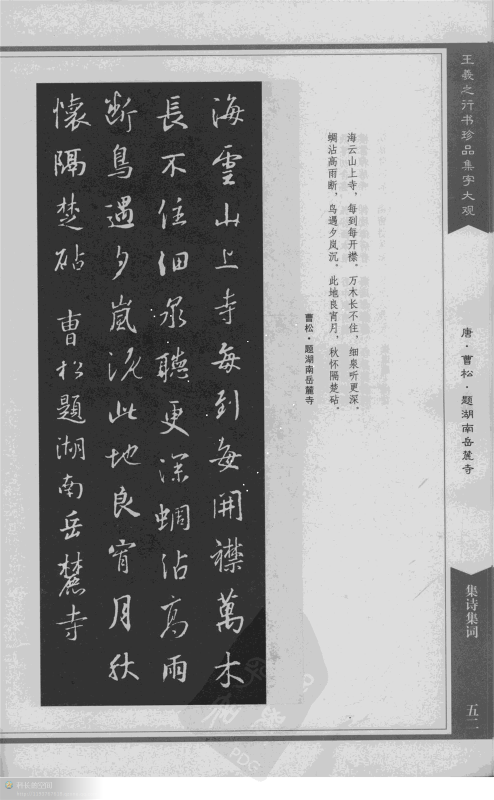 王羲之行书珍品集字大观
唐·曹松·题湖南岳麓寺
集诗集词
五二
海云山上寺，每到每开襟。万木长不住，细泉听更深。
蜩沾高雨断，鸟遇夕岚沉。此地良宵月，秋怀隔楚砧。
曹松·题湖南岳麓寺
海雲山上寺每到每開襟萬木
長不住細泉聽更深蜩沾高雨
断鳥遇夕嵐沉此地良宵月秋
懷隔楚砧 曹松題湖南岳麓寺